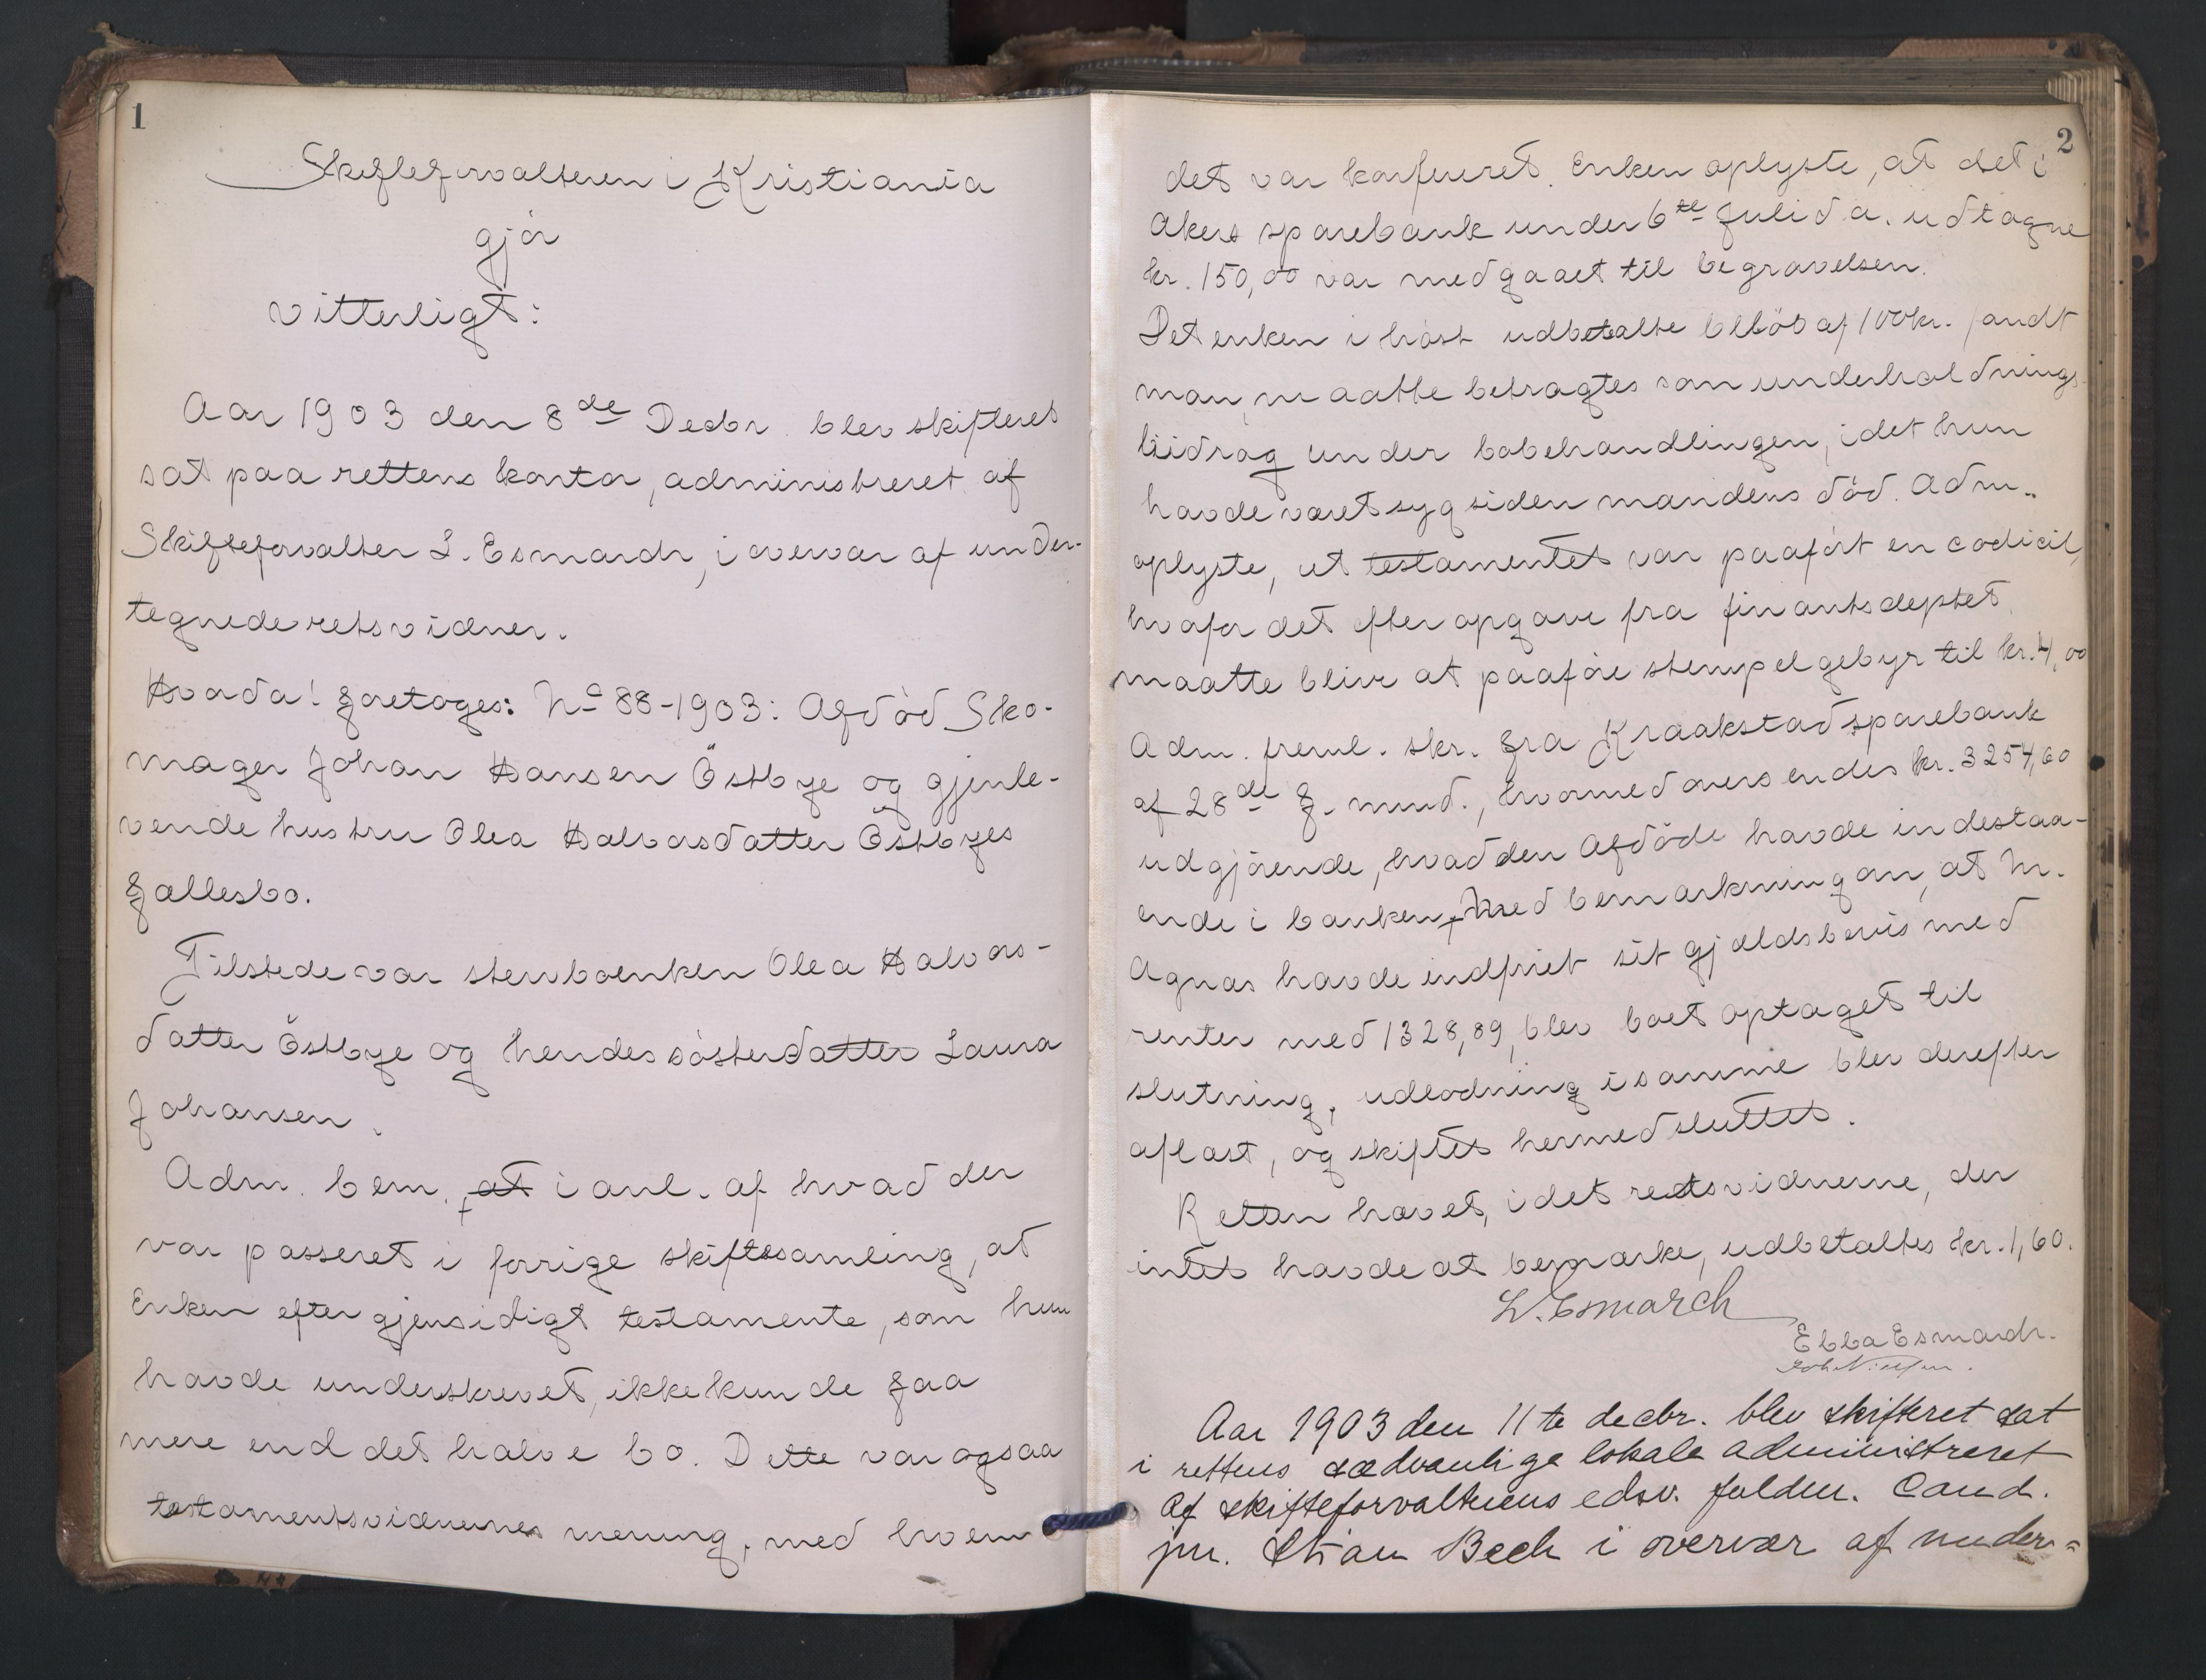 1
Skifteforvalteren i Kristiania
gjør
vitterligt:
Aar 1903 den 8de Decbr. blev skifteret
sat paa rettens kontor, administreret af
Skifteforvalter L. Esmarch, i overvær af under-
tegnede retsvidner.
Hvorda! foretoges: No 88-1903: Afdød Sko-
mager Johan Hansen Östbye og gjenle-
vende hustru Olea Halvorsdatter Östbyes
fællesbo.
Tilstede var stervboenken Olea Halvors-
datter Östbye og hendes søsterdatter Laura
Johansen.
Adm. bem., at i anl. af hvad der
var passeret i forrige skiftesamling, at
Enken efter gjensidigt testamente, som hun
havde underskrevet, ikke kunde faa
mere end det halve bo. Dette var ogsaa
testamentsvidnernes mening, med hvem
2
det var konfereret. Enken oplyste, at det i
Akers sparebank under 6te Juli d.a. udtagne
kr. 150,00 var medgaaet til begravelsen.
Det enken i høst udbetalte beløb af 100 kr. fandt
man, maatte betragtes som underholdnings-
bidrag under bobehandlingen, idet hun
havde været syg siden mandens død. Adm.
oplyste, at testamentet var paaført en codicil,
hvorfor det efter opgave fra finantsdeptet.
maatte blive at paaføre stempelgebyr til kr. 4,00
Adm. freml. skr. fra Kraakstad sparebank
af 28de f. mnd., hvormed oversendes kr. 3254,60
udgjørende, hvad den Afdøde havde indestaa-
ende i banken, Med bemærkning om, at Hr.
Agnor havde indfriet sit gjældsbevis med
renter med 1328,89, blev boet optaget til
slutning, udlodning i samme blev derefter
aflæst, og skiftet hermed sluttet.
Retten hævet, idet retsvidnerne, der
intet havde at bemærke, udbetaltes kr. 1,60.
L. Esmarch
Ebba Esmarch.
Aar 1903 den 11te decbr. blev skifteret sat
i rettens sædvanlige lokale administreret
af skifteforvalterens edsv. fuldm. Cand.
jur. Stian Bech i overvær af under-